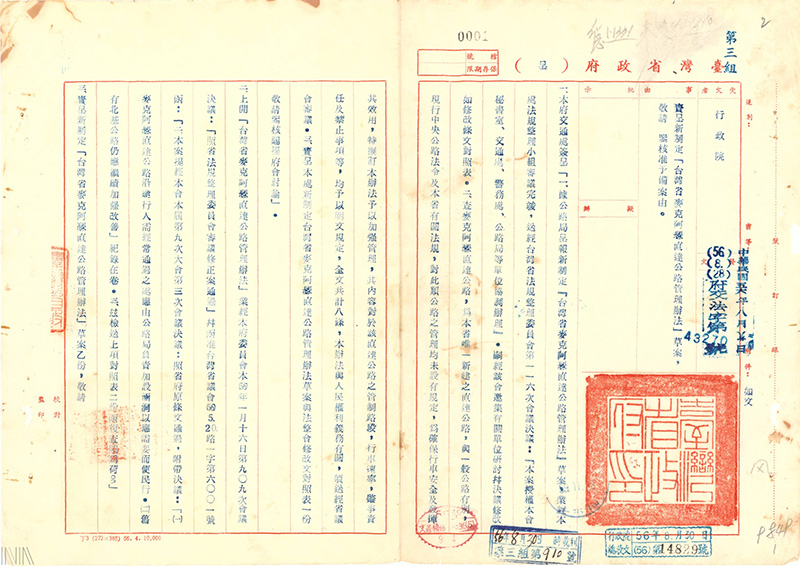 0001
2
第三組
檔號
保存期限
臺灣省政府（呈）
受文者
行政院
事由
賫呈新制定「台灣省麥克阿瑟直達公路管理辦法」草案，
敬請　鑒核准予備案由。
批示
擬辦
中華民國
(56)
府交法字第
43270
號
附件：如文
臺灣省政府印
一、本府交通處簽呈「一、據公路局呈報新制定『台灣省麥克阿瑟直達公路管理辦法』草案，業經本
處法規整理小組審議完竣，送經台灣省法規整理委員會第一一六次會議決議：『本案授權本會
秘書室、交通處、警務處、公路局等單位協調辦理』。嗣經該會邀集有關單位研討并決議修改
如修改條文對照表。二、查麥克阿瑟直達公路，為本省唯一新建之直達公路，與一般公路有別，
現行中央公路法令及本省有關法規，對此類公路之管理均未設有規定，為確保行車安全及發揮
其效用，特擬訂本辦法予以加強管理，其內容對於該直達公路之管制路段，行車速率，肇事責
任及禁止事項等，均予以明文規定，全文共計八條，本辦法與人民權利義務有關，須送經省議
會審議。三、賫呈本處新制定台灣省麥克阿瑟直達公路管理辦法草案與法整會修改文對照表一份
敬請鑒核提報府會討論」。
二、上開「台灣省麥克阿瑟直達公路管理辦法」業經本府委員會本56年一月十六日第九〇九次會議
決議：「照省法規整理委員會審議修正案通過」并函准台灣省議會56 5.20.路一字第六〇〇一號
函：「二、本案提經本會本屆第九次大會第三次會議決議：照省府原條文通過，附帶決議：『(一)
麥克阿瑟直達公路沿線行人需經常通過之處應由公路局負責加設涵洞以應需要而便民行。(二)舊
有北基公路仍應繼續加強改善』紀錄在卷。
三、賫呈新制定「台灣省麥克阿瑟直達公路管理辦法」草案乙份，敬請
校對
監印
56年8月30日
第三組第910號
行政院
56年8月30日
總收文(56)第14829號
73 (272×393) 56. 4. 10,000